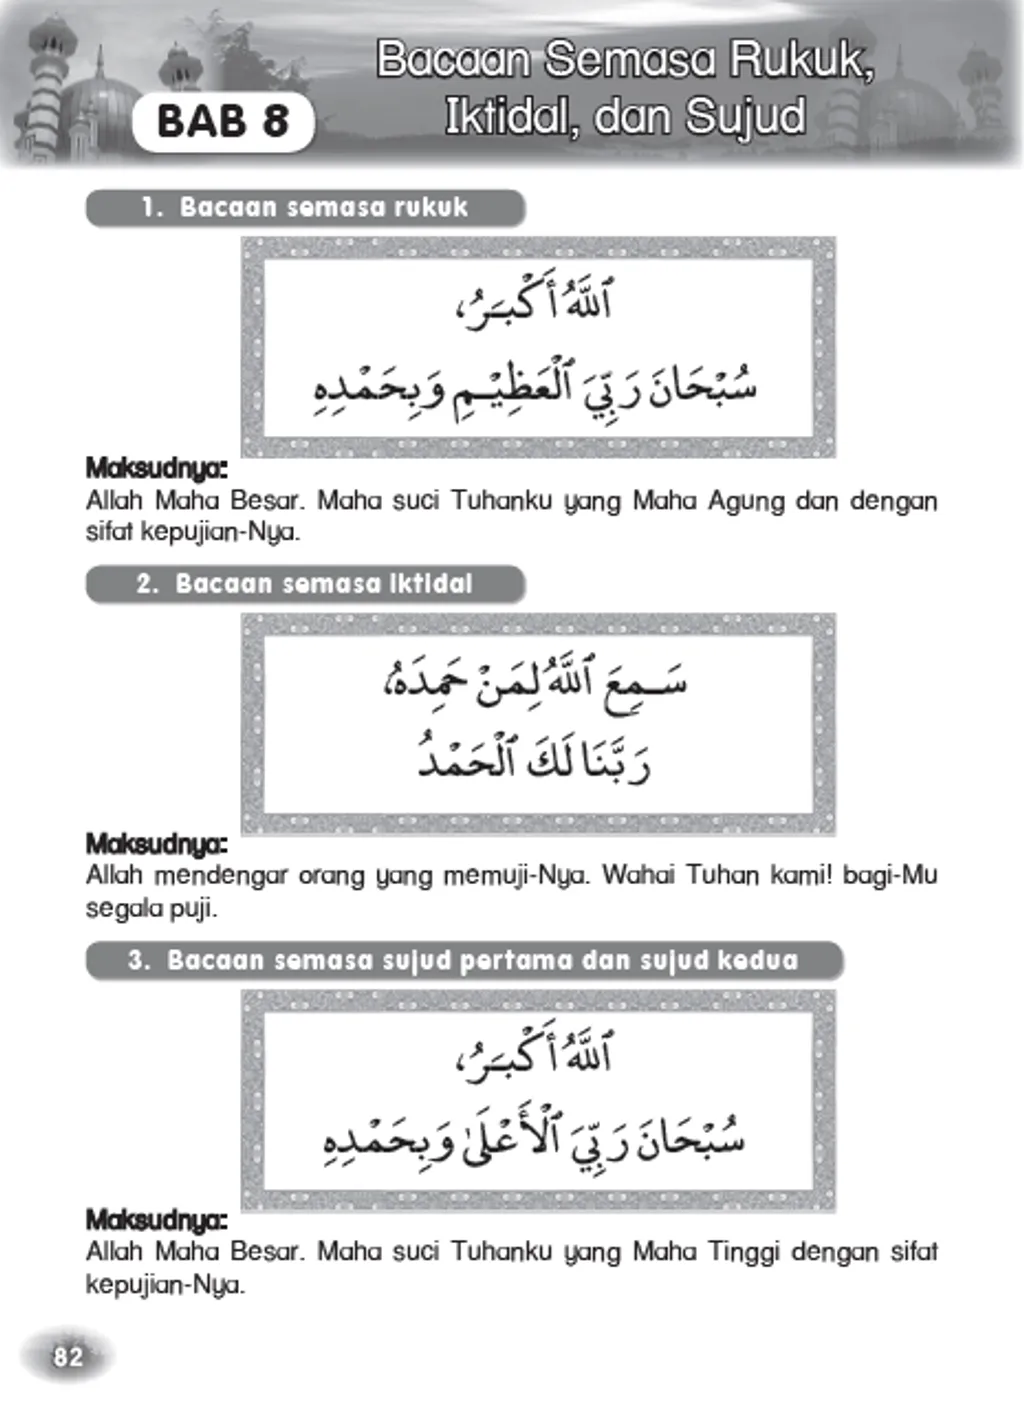 BAB 8
Bacaan Semasa Rukuk,
Iktidal, dan Sujud
1. Bacaan semasa rukuk
ٱللَّهُ أَكْبَرُ،
سُبْحَانَ رَبِّيَ ٱلْعَظِيْمِ وَبِحَمْدِهِ
Maksudnya:
Allah Maha Besar. Maha suci Tuhanku yang Maha Agung dan dengan
sifat kepujian-Nya.
2. Bacaan semasa iktidal
سَمِعَ ٱللَّهُ لِمَنْ حَمِدَهُ،
رَبَّنَا لَكَ ٱلْحَمْدُ
Maksudnya:
Allah mendengar orang yang memuji-Nya. Wahai Tuhan kami! bagi-Mu
segala puji.
3. Bacaan semasa sujud pertama dan sujud kedua
ٱللَّهُ أَكْبَرُ،
سُبْحَانَ رَبِّيَ ٱلْأَعْلَىٰ وَبِحَمْدِهِ
Maksudnya:
Allah Maha Besar. Maha suci Tuhanku yang Maha Tinggi dengan sifat
kepujian-Nya.
82